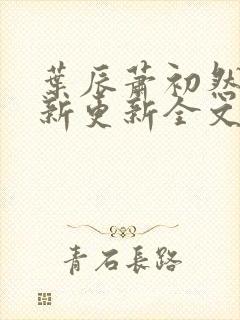 葉辰蕭初然
新更新全文
青石長路